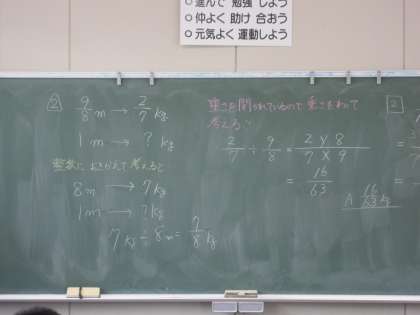 ○進んで 勉強 しよう
○仲よく 助け 合おう
○元気よく 運動しよう
2 9/8 m → 2/7 kg
1 m → ? kg
整数におきかえて考えると
8 m → 7 kg
1 m → ? kg
7 kg ÷ 8 m = 7/8 kg
重さを聞かれているので 重さをわって
考える。
2/7 ÷ 9/8 = 2×8/7×9
= 16/63
A 16/63 kg
2